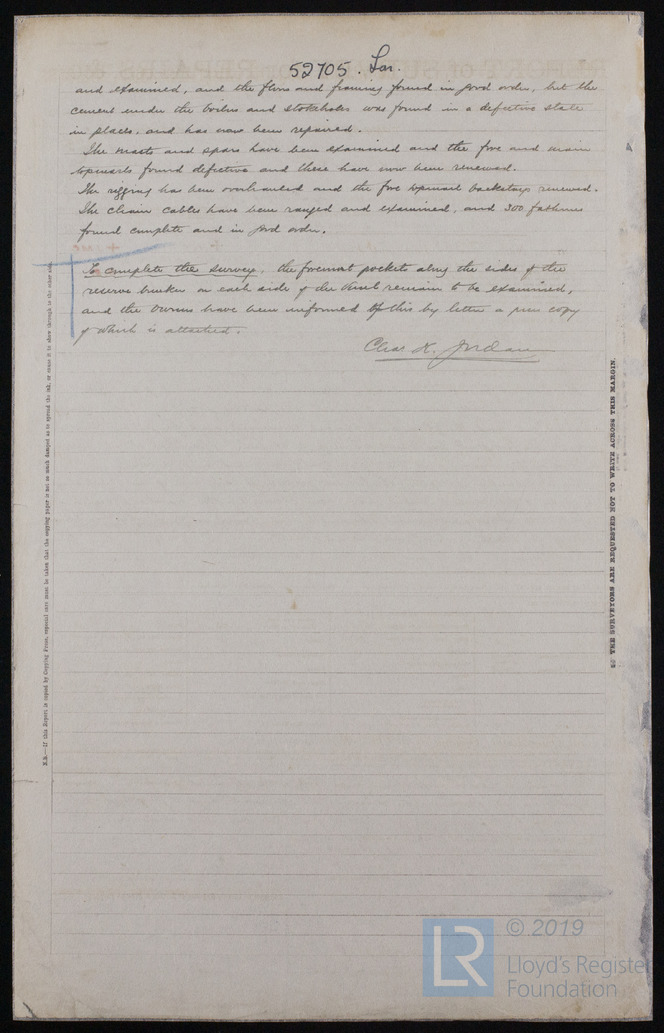 52705. Lon.
and examined, and the floors and framing found in good order, but the
cement under the boilers and stokeholes was found in a defective state
in places, and has now been repaired.
The masts and spars have been examined and the fore and main
topmasts found defective and these have now been renewed.
The rigging has been overhauled and the fore topmast backstays renewed.
The chain cables have been ranged and examined, and 300 fathoms
found complete and in good order.
To complete the survey, the foremost pockets along the sides of the
reserve bunker on each side of the vessel remain to be examined,
and the Owners have been informed of this by letter a press copy
of which is attached.
Chas K. Jordan
N.B.—If this Report is copied by Copying Press, especial care must be taken that the copying paper is not so much damped as to spread the ink, or cause it to show through to the other side.
THE SURVEYORS ARE REQUESTED NOT TO WRITE ACROSS THIS MARGIN.
© 2019
LR
Lloyd's Register
Foundation